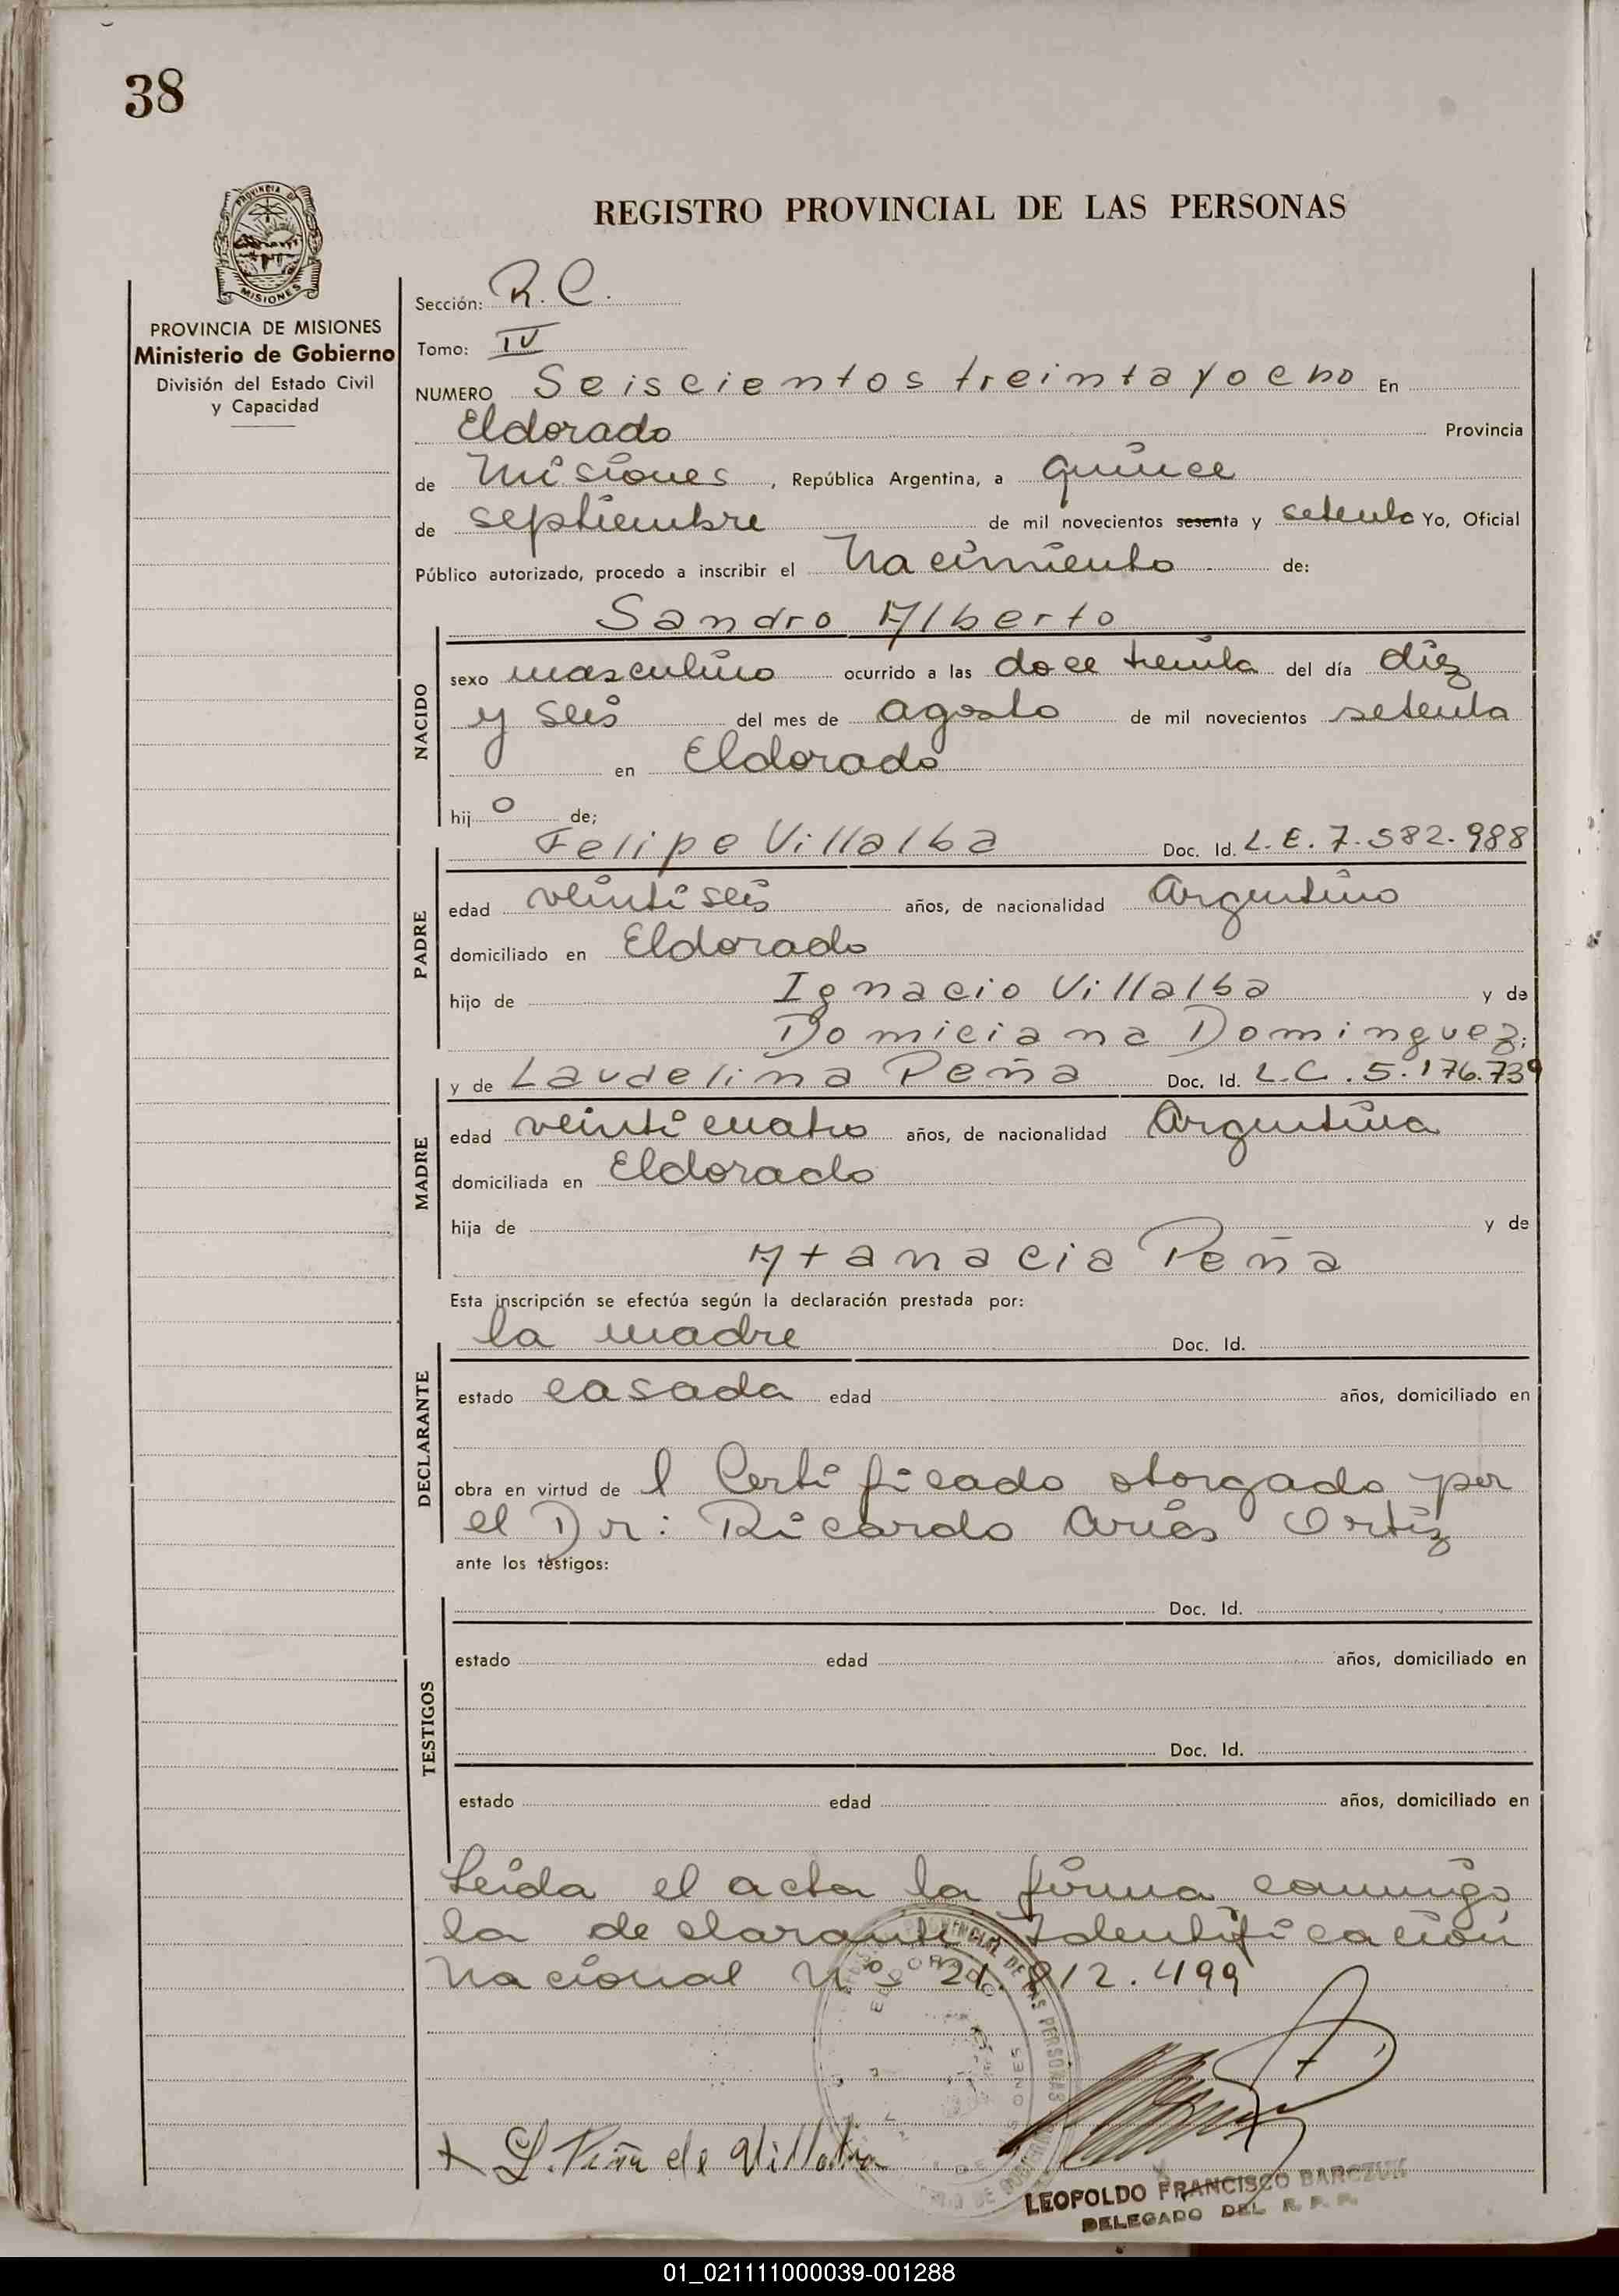 38
PROVINCIA DE
MISIONES
REGISTRO PROVINCIAL DE LAS PERSONAS
PROVINCIA DE MISIONES
Ministerio de Gobierno
División del Estado Civil
y Capacidad
Sección: R. C.
Tomo: IV
NUMERO Seiscientos treinta y ocho En
Eldorado Provincia
de Misiones, República Argentina, a quince
de septiembre de mil novecientos sesenta y setenta Yo, Oficial
Público autorizado, procedo a inscribir el Nacimiento de:
Sandro Alberto
NACIDO
sexo masculino ocurrido a las doce treinta del día diez
y seis del mes de agosto de mil novecientos setenta
en Eldorado
hijo de;
Felipe Villalba Doc. Id. L.E. 7.582.988
PADRE
edad veintiseis años, de nacionalidad Argentino
domiciliado en Eldorado
hijo de Ignacio Villalba y de
Domiciana Dominguez;
y de Laudelina Peña Doc. Id. L.C. 5.176.739
MADRE
edad veinticuatro años, de nacionalidad Argentina
domiciliada en Eldorado
hija de y de
Atanacia Peña
Esta inscripción se efectúa según la declaración prestada por:
la madre Doc. Id.
DECLARANTE
estado casada edad años, domiciliado en
obra en virtud de l Certificado otorgado por
el Dr: Ricardo Arias Ortiz
ante los testigos:
Doc. Id.
TESTIGOS
estado edad años, domiciliado en
Doc. Id.
estado edad años, domiciliado en
Leida el acta la firma conmigo
la declarante Identificación
Nacional Nº 21.812.499
L. Peña de Villalba
LEOPOLDO FRANCISCO BARCZUK
DELEGADO DEL R. P. P.
01_021111000039-001288